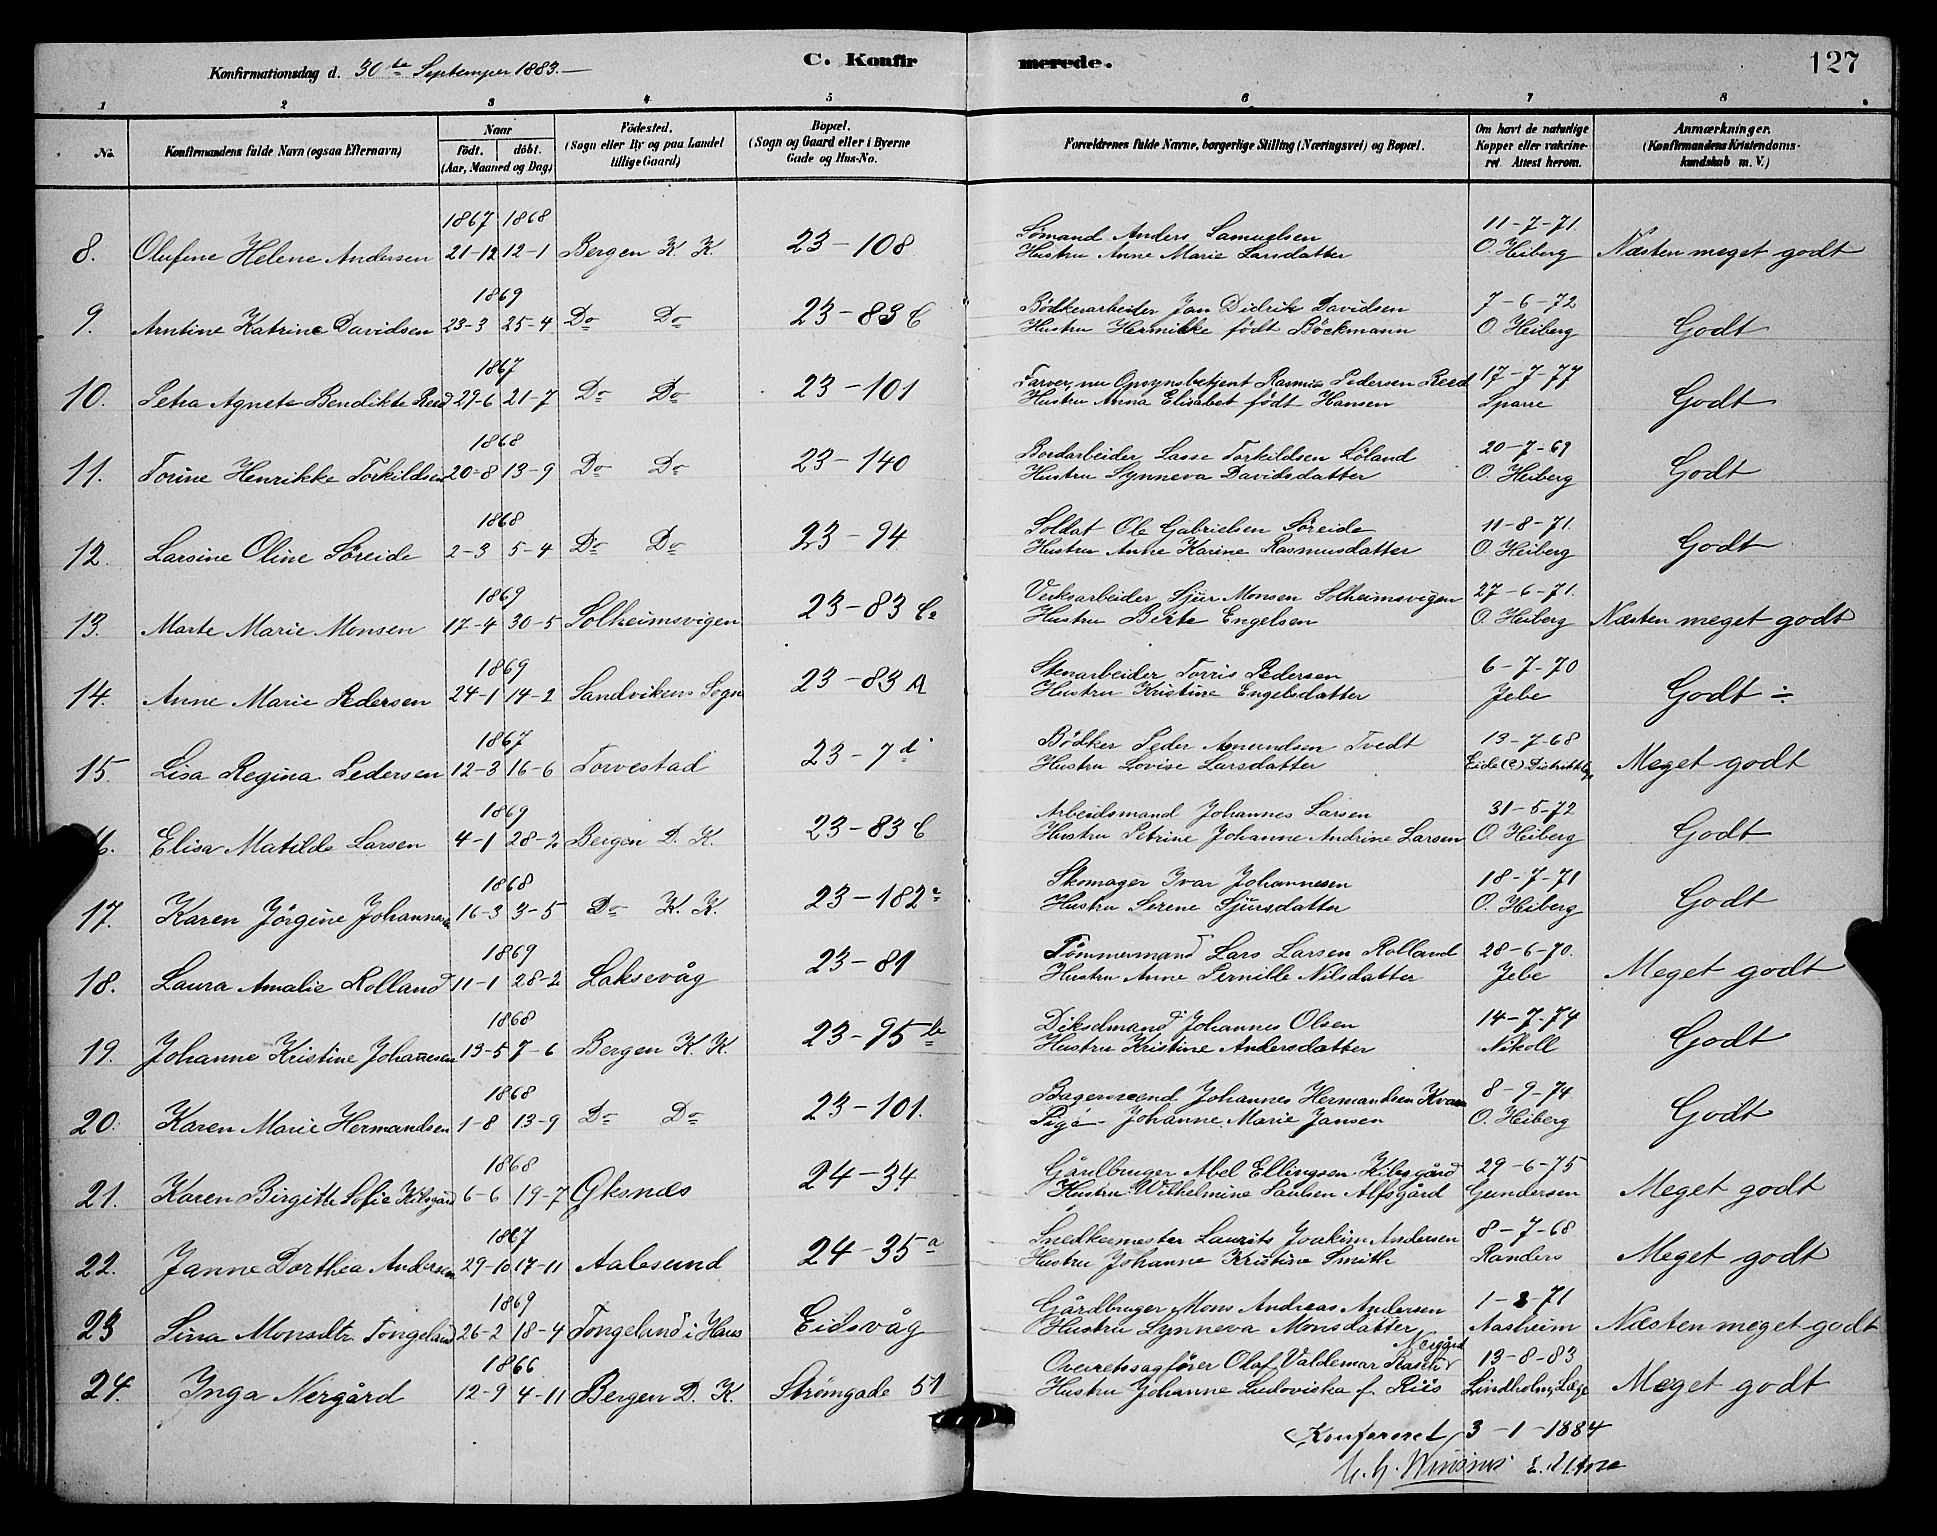 Konfirmationsdag d. 30te Septemper 1883.—
C. Konfirmerede.
127
1 2 3 4 5 6 7 8
No.
Konfirmandens fulde Navn (ogsaa Efternavn)
Naar
født. døbt.
(Aar, Maaned og Dag)
Födested.
(Sogn eller By og paa Landet
tillige Gaard)
Bopæl.
(Sogn og Gaard eller i Byerne
Gade og Hus-No.
Forældrenes fulde Navne, borgerlige Stilling (Næringsvei) og Bopæl.
Om havt de naturlige
Kopper eller vakcine-
ret Attest herom.
Anmærkninger.
(Konfirmandens Kristendoms-
kundskab m. V.)
1867 1868 Sømand Anders Samuelsen 11-7-71
8. Olufine Helene Andersen 21-12 12-1 Bergen K. K. 23-108 Hustru Anne Marie Larsdatter O. Heiberg Næsten meget godt
1869 Bødkerarbeider Jan Didrik Davidsen 7-6-72
9. Arntine Katrine Davidsen 23-3 25-4 Do Do 23-83 C Hustru Hermikke født Böckmann O. Heiberg Godt
1867 Farver, nu Opsynsbetjent Rasmus Pedersen Reed 17-7-77
10. Petra Agnete Bendikte Reed 29-6 21-7 Do Do 23-101 Hustru Anna Elisabet født Hansen Sparre Godt
1868 Bordarbeider Lasse Torkildsen Løland 20-7-69
11. Torine Henrikke Torkildsen 20-8 13-9 Do Do 23-140 Hustru Synneva Davidsdatter O. Heiberg Godt
1868 Soldat Ole Gabrielsen Søreide 11-8-71.
12. Larsine Oline Søreide 2-3 5-4 Do Do 23-94 Hustru Anne Karine Rasmusdatter O. Heiberg Godt
1869 Verksarbeider Sjur Monsen Solheimsvigen 27-6-71.
13. Marte Marie Monsen 17-4 30-5 Solheimsvigen 23-83 C Hustru Berte Engelsen O. Heiberg Næsten meget godt
1869 Stenarbeider Torris Pedersen 6-7-70
14. Anne Marie Pedersen 24-1 14-2 Sandvikens Sogn 23-83 A Hustru Kristine Engelsdatter Jebe Godt ÷
1867 Bødker Peder Amundsen Tvedt 13-7-68
15. Lisa Regina Pedersen 12-3 16-6 Torvestad 23-7 d Hustru Lovise Larsdatter Eide (C) Meget godt
1869 Arbeidsmand Johannes Larsen 31-5-72
6. Elisa Matilde Larsen 4-1 28-2 Bergen D. K. 23-83 C Hustru Petrine Johanne Andrine Larsen O. Heiberg Godt
1868 Skomager Ivar Johannesen 18-7-71
17. Karen Jørgine Johannesen 16-3 3-5 Do K. K. 23-182 Hustru Serene Sjursdatter O. Heiberg Godt
1869 Tømmermand Lars Larsen Rolland 28-6-70.
18. Laura Amalie Rolland 11-1 28-2 Laksevåg 23-81 Hustru Anne Pernille Nilsdatter Jebe Meget godt
1868 Dikselmand Johannes Olsen 14-7-74
19. Johanne Kristine Johanesen 13-5 7-6 Bergen K. K. 23-95 b Hustru Kristine Andersdatter Nikoll Godt
1868 Bagersvend Johannes Hermandsen Kvam 8-9-74
20. Karen Marie Hermandsen 1-8 13-9 Do Do 23-101. Pige Johanne Marie Jansen O. Heiberg Godt
1868 Gårdbruger Abel Ellingsen Kilsgård 29-6-75
21. Karen Birgitte Sofie Kilsgård 6-6 19-7 Øksnæs 24-34 Hustru Wilhelmine Paulsen Alfsgård Gundersen Meget godt
1867 Snedkermester Laurits Joakim Andersen 8-7-68
22. Janne Dorthea Andersen 29-10 17-11 Aalesund 24-35 a Hustru Johanne Kristine Smith Randers Meget godt
1869 Gårdbruger Mons Andreas Andersen 1-8-71
23 Sina Monsdtr Tongeland 26-2 18-4 Tongeland i Haus Eidsvåg Hustru Synneva Monsdatter Aasheim Næsten meget godt
1866 Overretssagfører Olaf Valdemar Rasch Nergård 13-8-83
24. Inga Nergård 12-9 4-11 Bergen D. K. Strømgade 51 Hustru Johanne Ludoviska f. Riis Lindholm, Læge Meget godt
Konfereret 3-1-1884